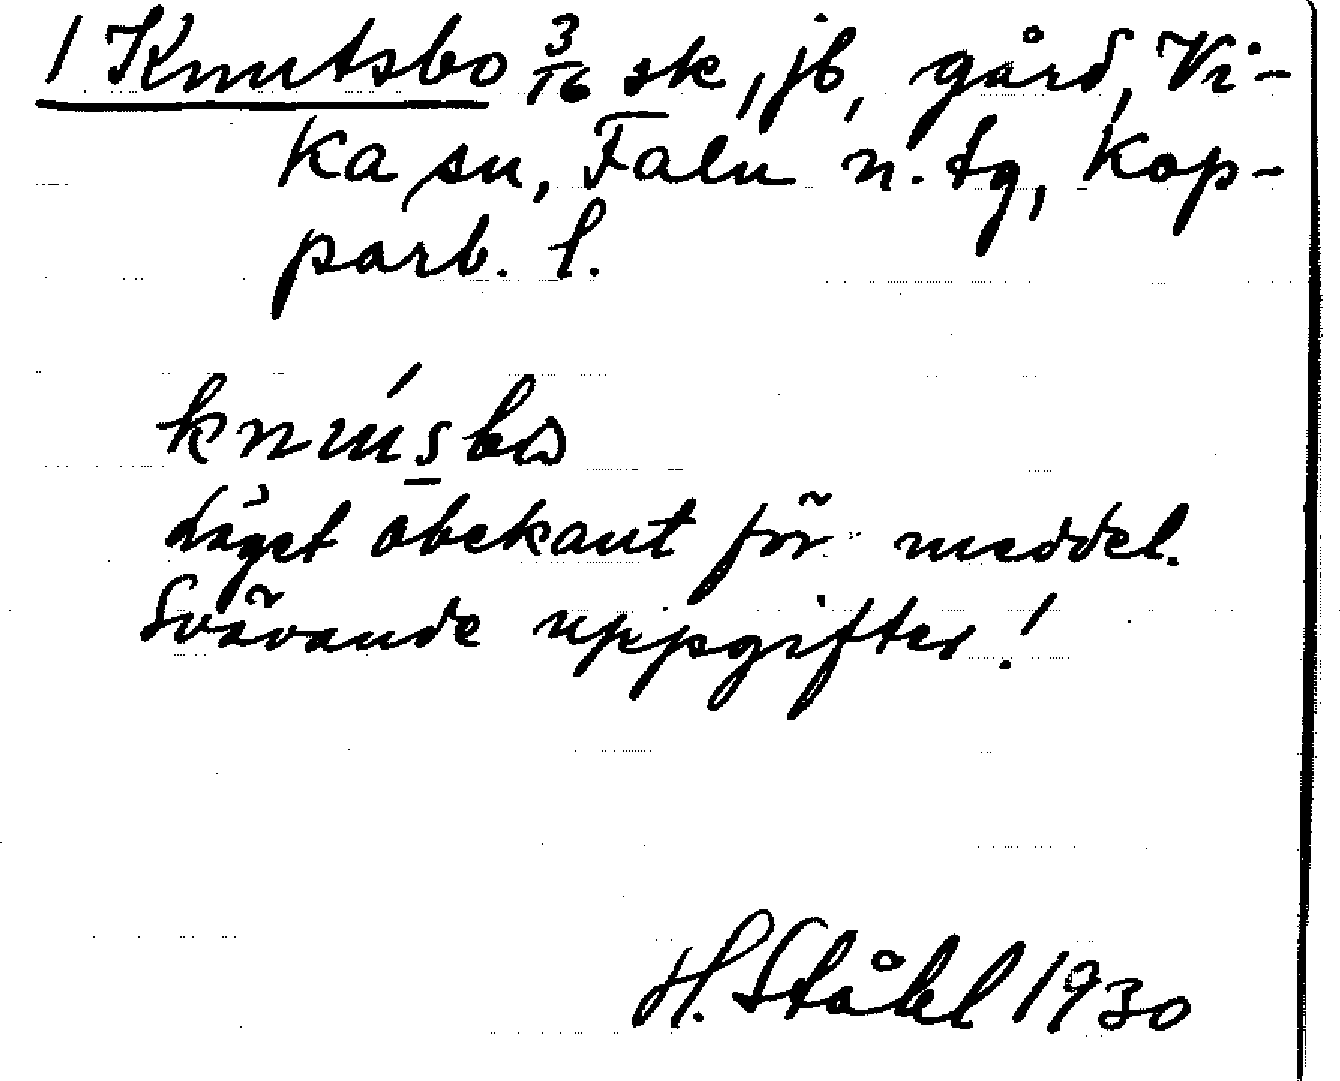 1 Knutsbo 3/16 sk, jb, gård, Vi-
ka sn, Falu n. tg, Kop-
parb. l.
knúsbo
Läget obekant för meddel.
Svävande uppgifter!
H. Ståhl 1930